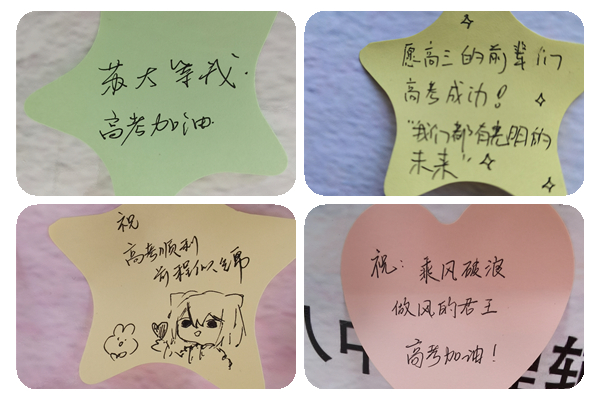 苏大等我.
高考加油.
愿高三的前辈们
高考成功!
"我们都有光明的
未来"
祝
高考顺利
前程似锦
祝: 乘风破浪
做风的君王
高考加油!
八中
程